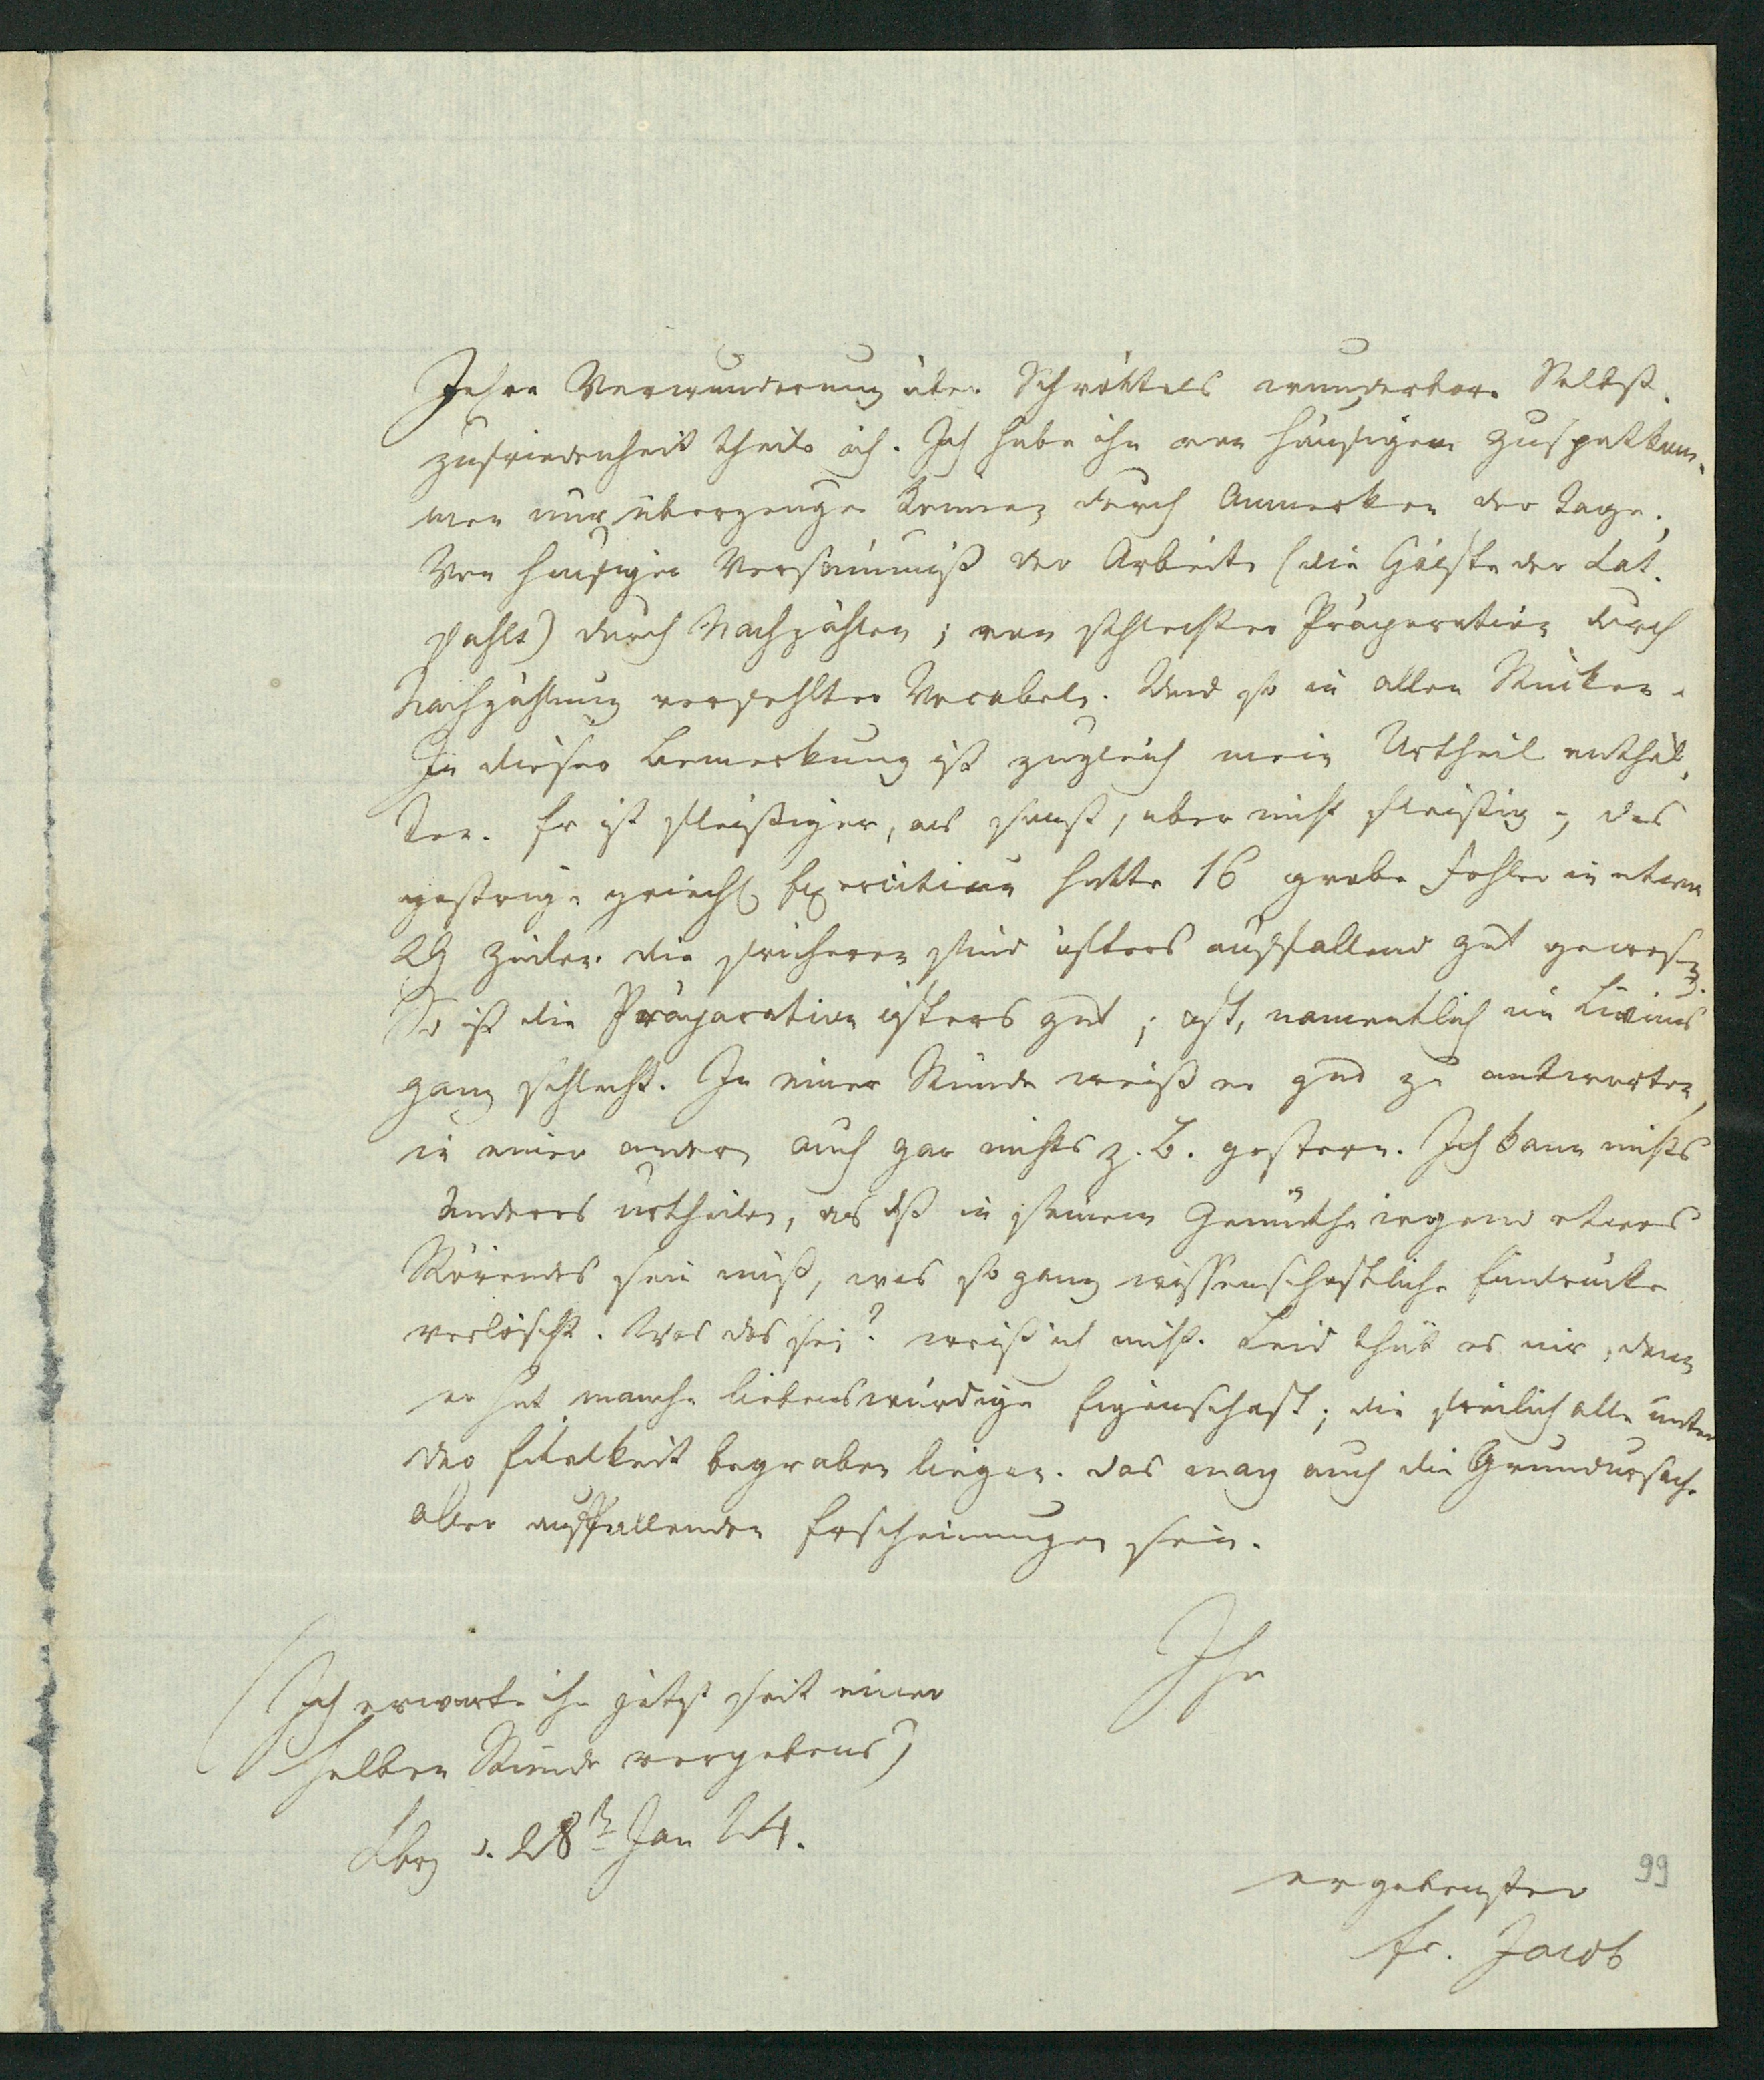 Ihre Verwunderung über Schröttels wunderbare Selbst-
zufriedenheit theile ich. Ich habe ihn von häufigem Zuspätkom-
men nur überzeugen können durch Anmerken der Tage;
Von häufiger Versäumniß der Arbeiten (die Hälfte der Lat.
fehlt) durch Nachzählen; von schlechter Präparation durch
Nachzählung verfehlter Vocabeln. Und so in allen Stücken.
In dieser Bemerkung ist zugleich mein Urtheil enthal-
ten. Er ist fleißiger, als sonst, aber nicht fleißig; das
gestrige griech. Exercitium hatte 16 grobe Fehler in etwa
29 Zeilen. die früheren sind öfters auffallend gut gewesen.
So ist die Präparation öfters gut; oft, namentlich im Livius
ganz schlecht. In einer Stunde weiß er gut zu antworten,
in einer andern auch gar nichts z. B. gestern. Ich kann nichts
Anderes urtheilen, als daß in seinem Gemüthe irgend etwas
Störendes sein muß, was so ganz wissenschaftliche Eindrücke
verlöscht. Was das sei? weiß ich nicht. Leid thut es mir, denn
er hat manche liebenswürdige Eigenschaft; die freilich alle unter
der Eitelkeit begraben liegen. das mag auch die Grundursache
aller auffallenden Erscheinungen sein.
Ihr
(Ich erwarte ihn jetzt seit einer
halben Stunde vergebens)
d. 28ten Jan 24.
ergebenster
Fr. Jacob
99